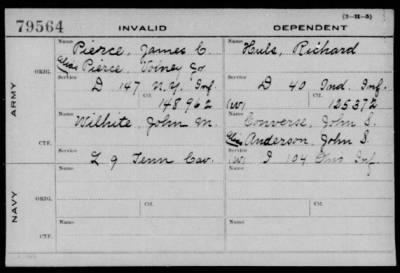 (3-H-5)
79564 INVALID DEPENDENT
Name Name
Pierce, James C. Huls, Richard
alias Pierce, Volney Jr
ORIG. Service Service
D 147 N.Y. Inf. D 40 Ind. Inf.
Ctf. 148962 (W) Ctf. 105372
ARMY
Name Name
Wilhite, John M. Converse, John S.
alias Anderson, John S.
CTF. Service Service
L 9 Tenn Cav. (W) I 104 Inf.
Name Ctf. Name Ctf.
ORIG.
Service Service
NAVY
Ctf. Ctf.
Name Name
CTF.
Service Service